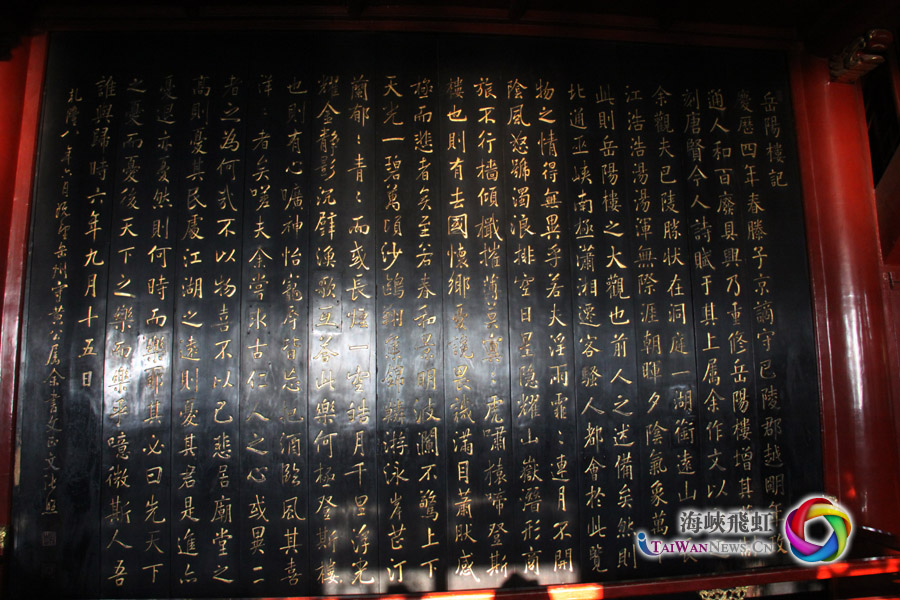 岳陽樓記
慶歷四年春滕子京謫守巴陵郡越明年政
通人和百廢具興乃重修岳陽樓增其
刻唐賢今人詩賦于其上属余作文以
余觀夫巴陵勝狀在洞庭一湖銜遠山
江浩浩湯湯渾無際涯朝暉夕陰氣象萬
此則岳陽樓之大觀也前人之述備矣然則
北通巫峽南極瀟湘遷客騷人都會於此覽
物之情得無異乎若夫淫雨霏〻連月不開
陰風怒號濁浪排空日星隱耀山嶽潛形商
旅不行檣傾檝摧薄暮冥〻虎嘯猿啼登斯
樓也則有去國懷鄉憂讒畏譏滿目蕭然感
極而悲者矣至若春和景明波瀾不驚上下
天光一碧萬頃沙鷗翔集錦鱗游泳岸芷汀
蘭郁〻青〻而或長煙一空皓月千里浮光
耀金靜影沉璧漁歌互答此樂何極登斯樓
也則有心曠神怡寵辱皆忘把酒臨風其喜
洋〻者矣嗟夫余嘗求古仁人之心或異二
者之為何哉不以物喜不以己悲居廟堂之
高則憂其民處江湖之遠則憂其君是進亦
憂退亦憂然則何時而樂耶其必曰先天下
之憂而憂後天下之樂而樂乎噫微斯人吾
誰與歸時六年九月十五日
乾隆八年六月既望岳州守黃公属余書文正文張照
海峽飛虹
TAIWANNEWS.CN